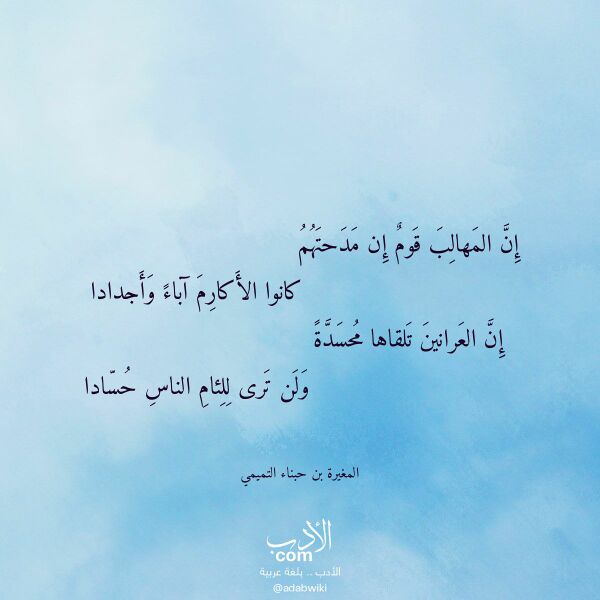 إِنَّ المَهالِبَ قَومٌ إِن مَدَحتَهُمُ
كانوا الأَكارِمَ آباءً وَأَجدادا
إِنَّ العَرانينَ تَلقاها مُحسَدَّةً
وَلَن تَرى لِلِئامِ الناسِ حُسّادا
المغيرة بن حبناء التميمي
الأدب
com
الأدب .. بلغة عربية
@adabwiki